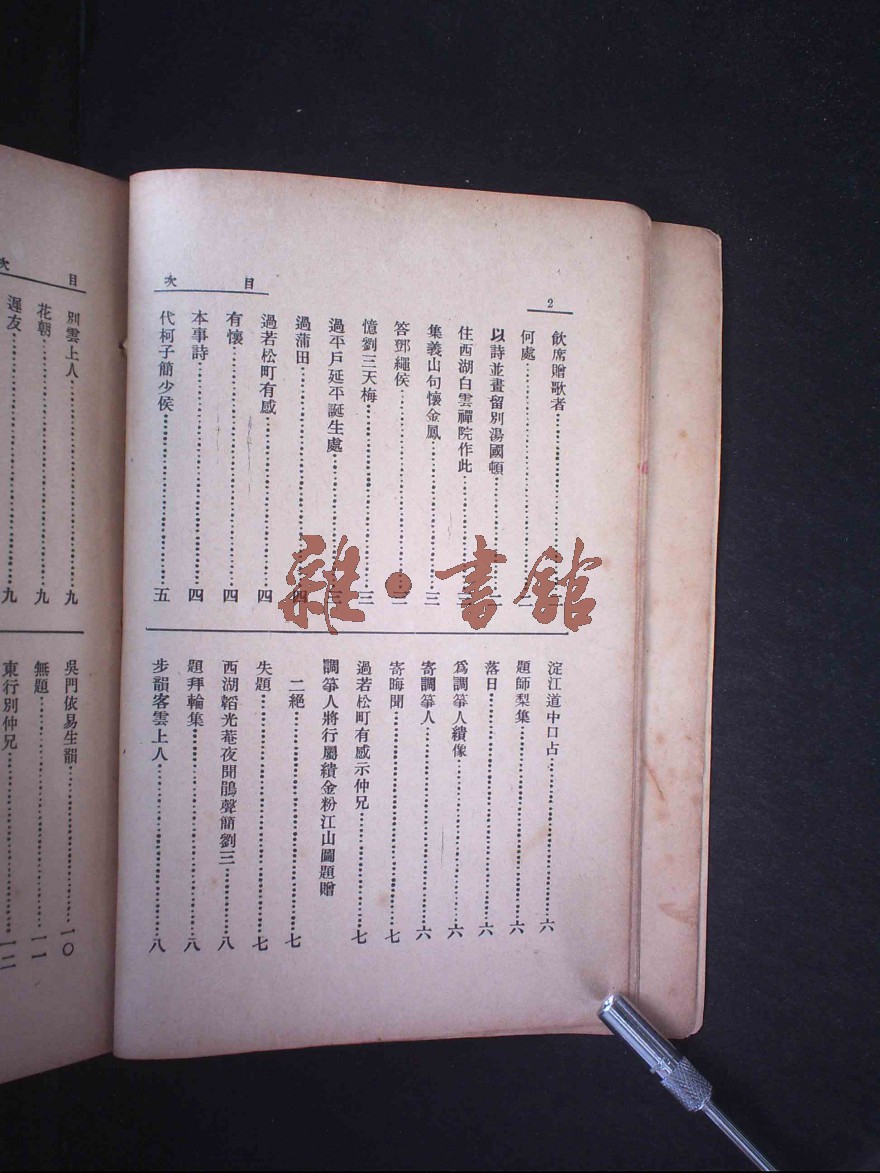 2
目次
飲席贈歌者
何處
以詩並畫留別湯國頓
住西湖白雲禪院作此
集義山句懷金鳳……三
答鄧繩侯
憶劉三天梅……三
過平戶延平誕生處……三
過蒲田……四
過若松町有感……四
有懷……四
本事詩……四
代柯子簡少侯……五
淀江道中口占……六
題師梨集……六
落日……六
爲調箏人繢像……六
寄調箏人……六
寄晦聞……七
過若松町有感示仲兄……七
調箏人將行屬繢金粉江山圖題贈
二絕……七
失題……七
西湖韜光菴夜聞鵑聲簡劉三……八
題拜輪集……八
步韻客雲上人……八
目次
別雲上人……九
花朝……九
遲友……九
吳門依易生韻……一〇
無題……一一
東行別仲兄……一二
雜·書館